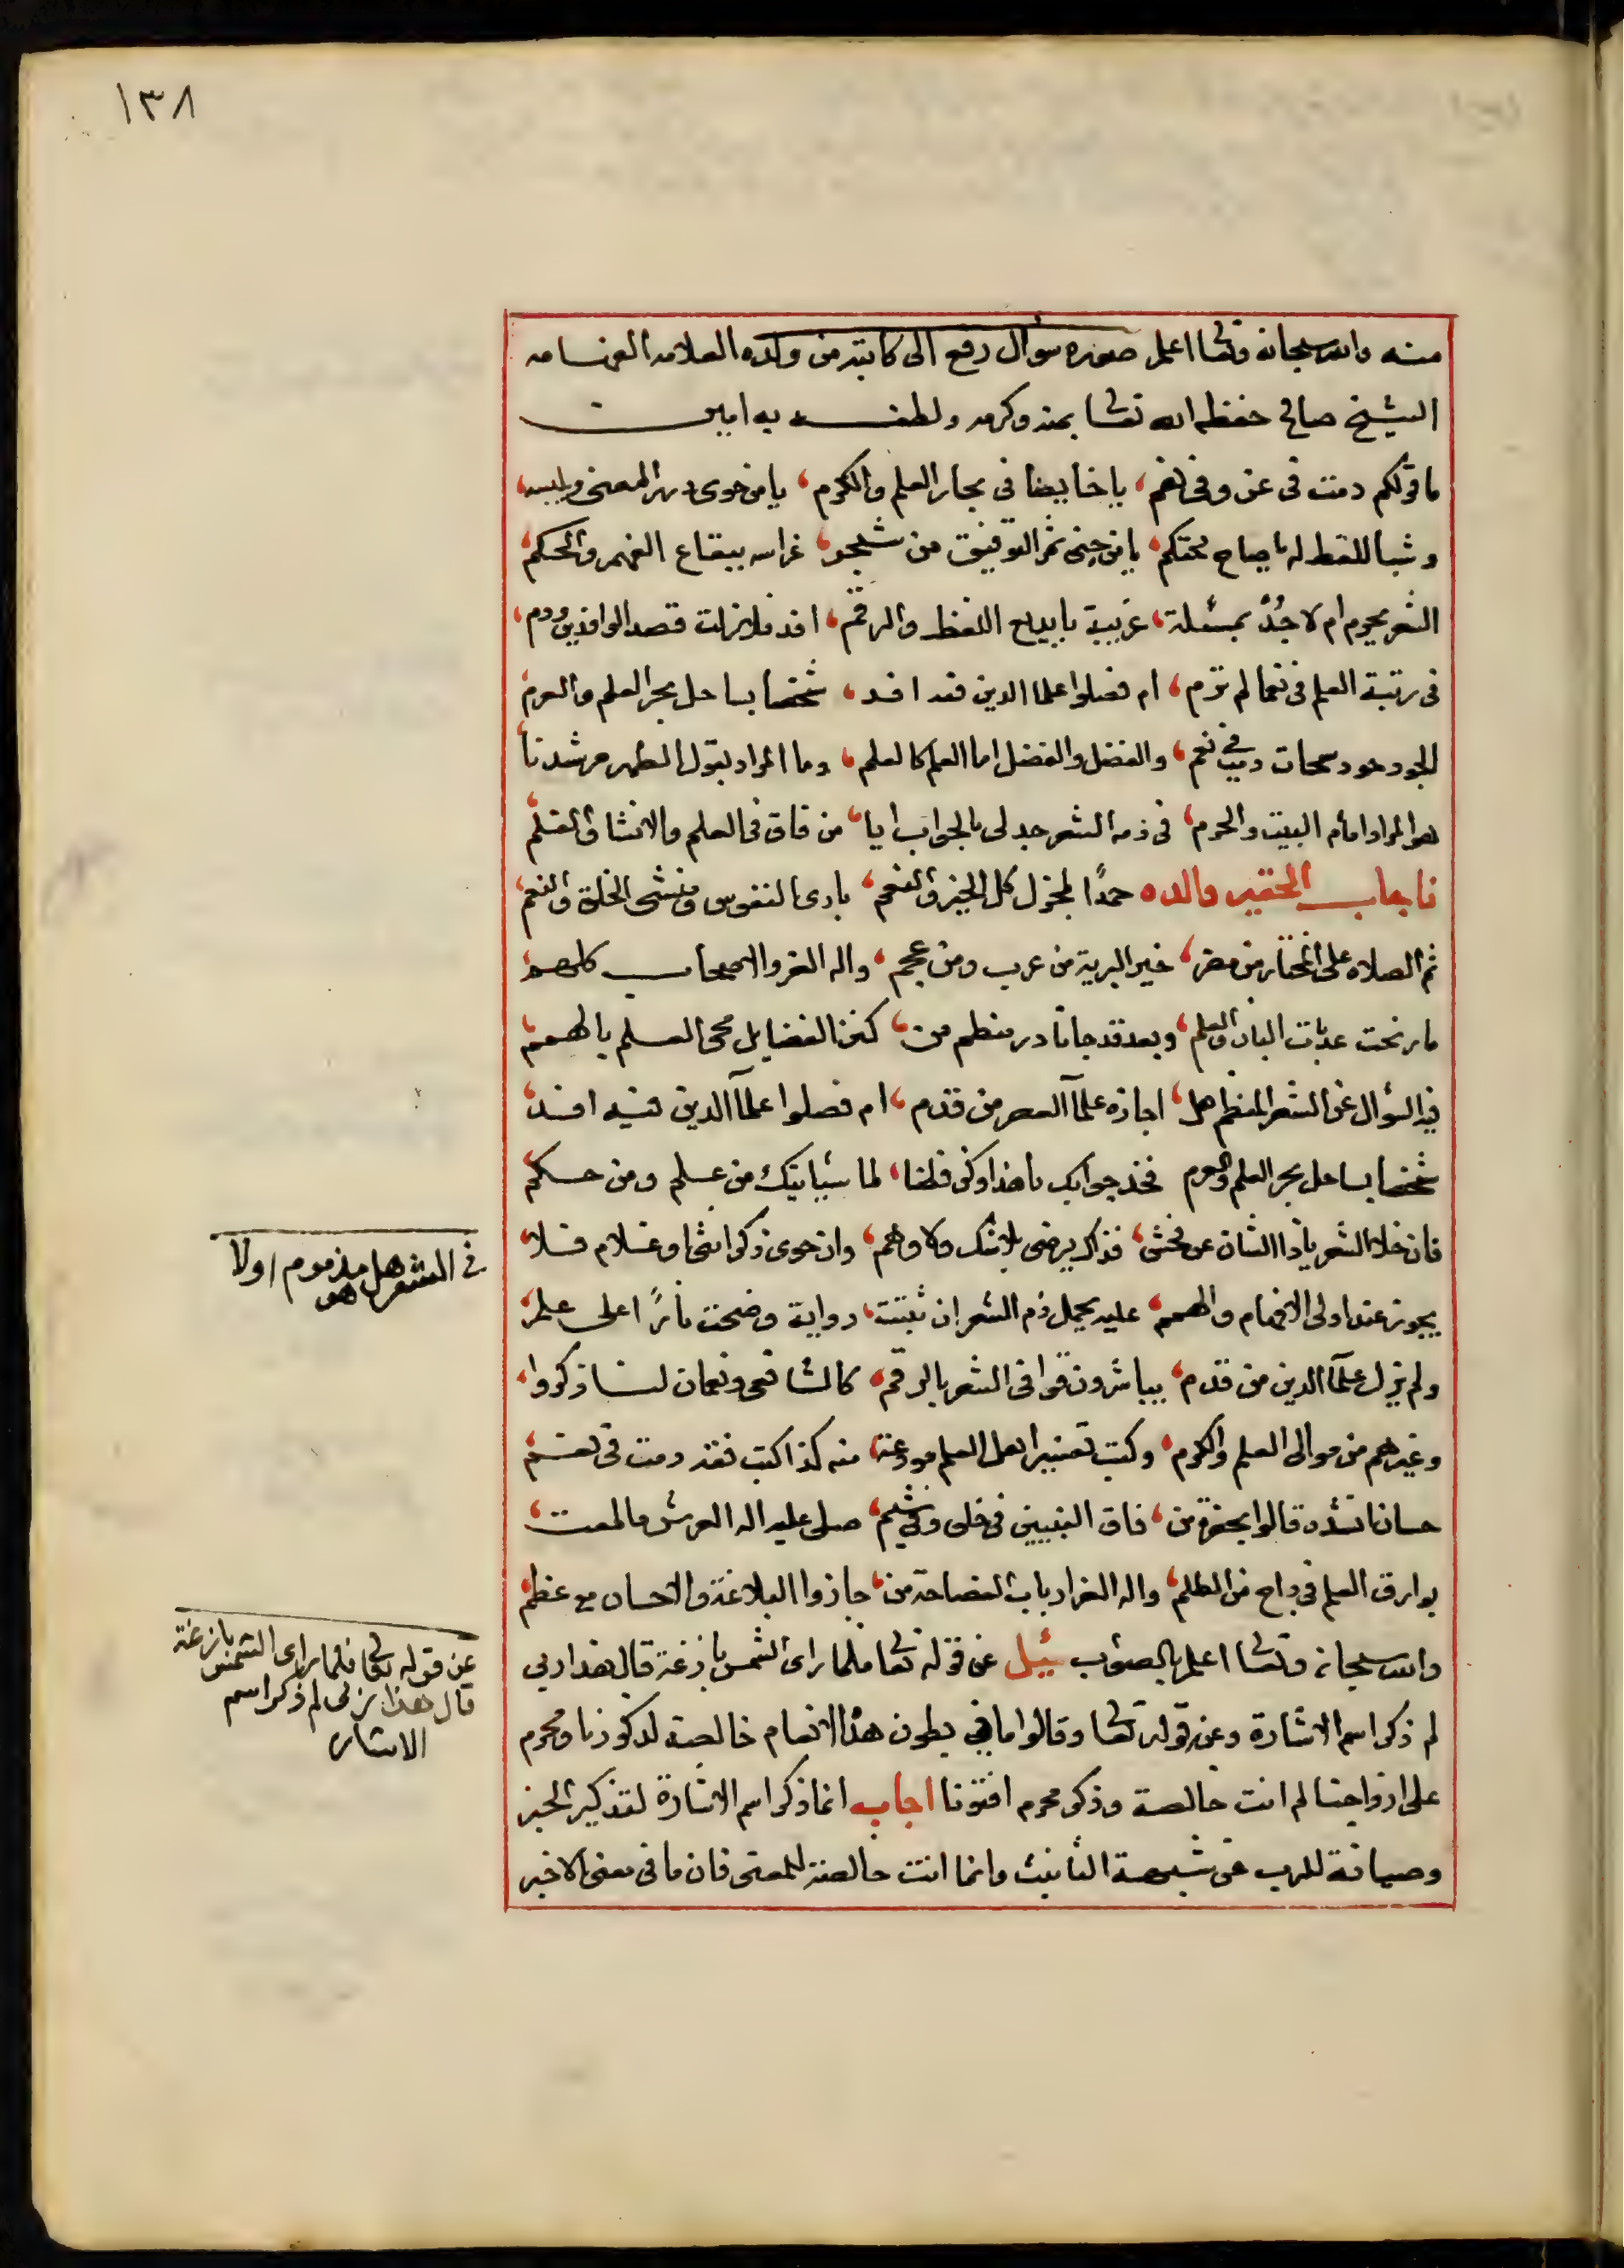 ١٣٨
منه والله سبحانه وتعالى اعلم صورة سؤال رفع الى كاتبه من ولده العلامه الفهامه
الشيخ صالح حفظه الله تعالى بمنه وكرمه ولطف به امين
ما قولكم دمت فى عز وفى نعم، يا خايضا فى بحار العلم والكرم، يا من حوى در المعنى
يا من جنى ثمر التوفيق من شجر، غراسه ببقاع الفهم والحكم
الشعر يحرم ام لا جُدْ بمسئلة، غريبة يا بديع اللفظ والرقم، افد فلا زلت قصد الوافدين ودم،
فى رتبة العلم فى نعما لم ترم، ام فصلوا علما الدين فقد افد، شخصا بساحل بحر العلم والعرم
والفضل والفضل اما العلم كالعلم، وما المراد بقول الطهر مرشدنا
هو المراد امام البيت والحرم، فى ذمه الشعر جد لى بالجواب ايا، من فاق فى العلم والانشا والقلم
فاجاب الحقير والده حمدًا لمجزل كل الخير والنعم، بارى النفوس ومنشى الخلق والنعم،
ثم الصلاه على المختار من مضر، خير البرية من عرب ومن عجم، واله الغر والاصحاب كلهم
ما رنحت عذبات البان والعلم، وبعد قد جانا در منظم من، كنز الفضايل محى العلم بالهمم
فيه السؤال عن الشعر المنظم هل، اجازه علمآ العصر من قدم، ام فصلوا علمآ الدين فيه افد،
شخصا بساحل بحر العلم والعرم فخذ جوابك يا هذا وكن فطنا، لما سياتيك من علم ومن حكم
فان خلا الشعر يا ذا الشان عن فحش، فذاك يرضى بلا شك ولا وهم، وان حوى ذكر انثى او غلام فلا،
يجوز عند اولى الافهام والهمم، عليه يحمل ذم الشعر ان ثبتت، رواية وضحت نارًا على علم
ولم يزل علمآ الدين من قدم، يباشرون قوافى الشعر بالرقم، كالشافعى ونعمان لنا ذكروا،
وغيرهم من موالى العلم والكرم، وكتب تفسير اهل العلم مودعة، منه كذا كتب فقه دمت فى نعم
حسان انشده قالوا بحضرة من، فاق النبيين فى خلق وفى شيم، صلى عليه اله العرش ما لمعت،
بوارق العلم فى داج من الظلم، واله الغر ارباب الفصاحة من، حازوا البلاغة والاحسان مع عظم
والله سبحانه وتعالى اعلم بالصواب سُئِل عن قوله تعالى فلما راى الشمس بازغة قال هذا ربى
لم ذكر اسم الاشارة وعن قوله تعالى وقالوا ما فى بطون هذه الانعام خالصة لذكورنا ومحرم
على ازواجنا لم انث خالصة وذكر محرم افتونا اجاب انما ذكر اسم الاشارة لتذكير الخبر
وصيانة للرب عن شبهة التانيث وانما انث خالصة للمعنى فان ما فى معنى الاخبر
فى الشعر هل هو مذموم او لا
عن قوله تعالى فلما راى الشمس بازغة
قال هذا ربى لم ذكر اسم
الاشاره